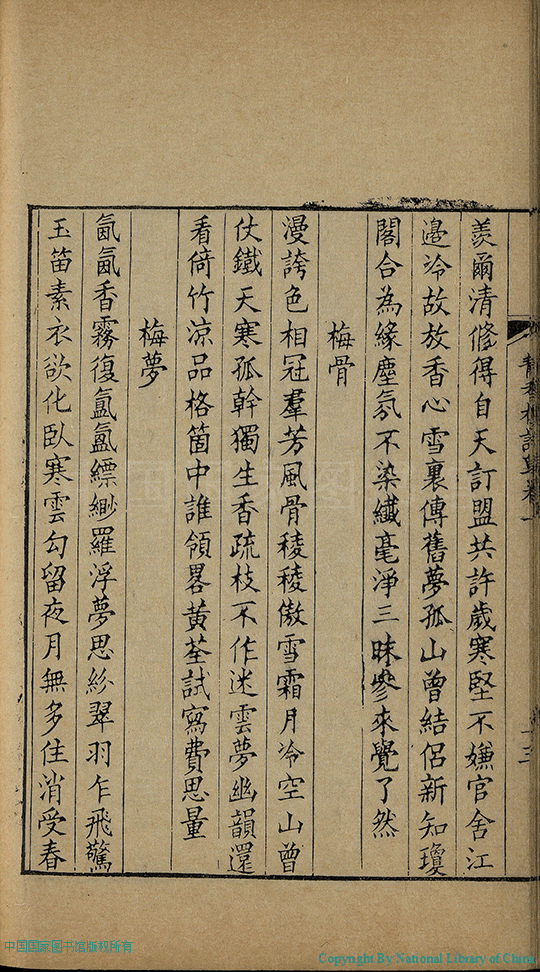 羨爾清修得自天訂盟共許歲寒堅不嫌官舍江
邊冷故放香心雪裏傳舊夢孤山曾結侶新知瓊
閣合為緣塵氛不染纖毫淨三昧參來覺了然
梅骨
漫誇色相冠羣芳風骨稜稜傲雪霜月冷空山曾
仗鐵天寒孤幹獨生香疏枝不作迷雲夢幽韻還
看倚竹凉品格箇中誰領畧黃荃試寫費思量
梅夢
氤氳香霧復氳氳縹緲羅浮夢思紛翠羽乍飛驚
玉笛素衣欲化臥寒雲勾留夜月無多住消受春
中国国家图书馆版权所有
Copyright By National Library of China